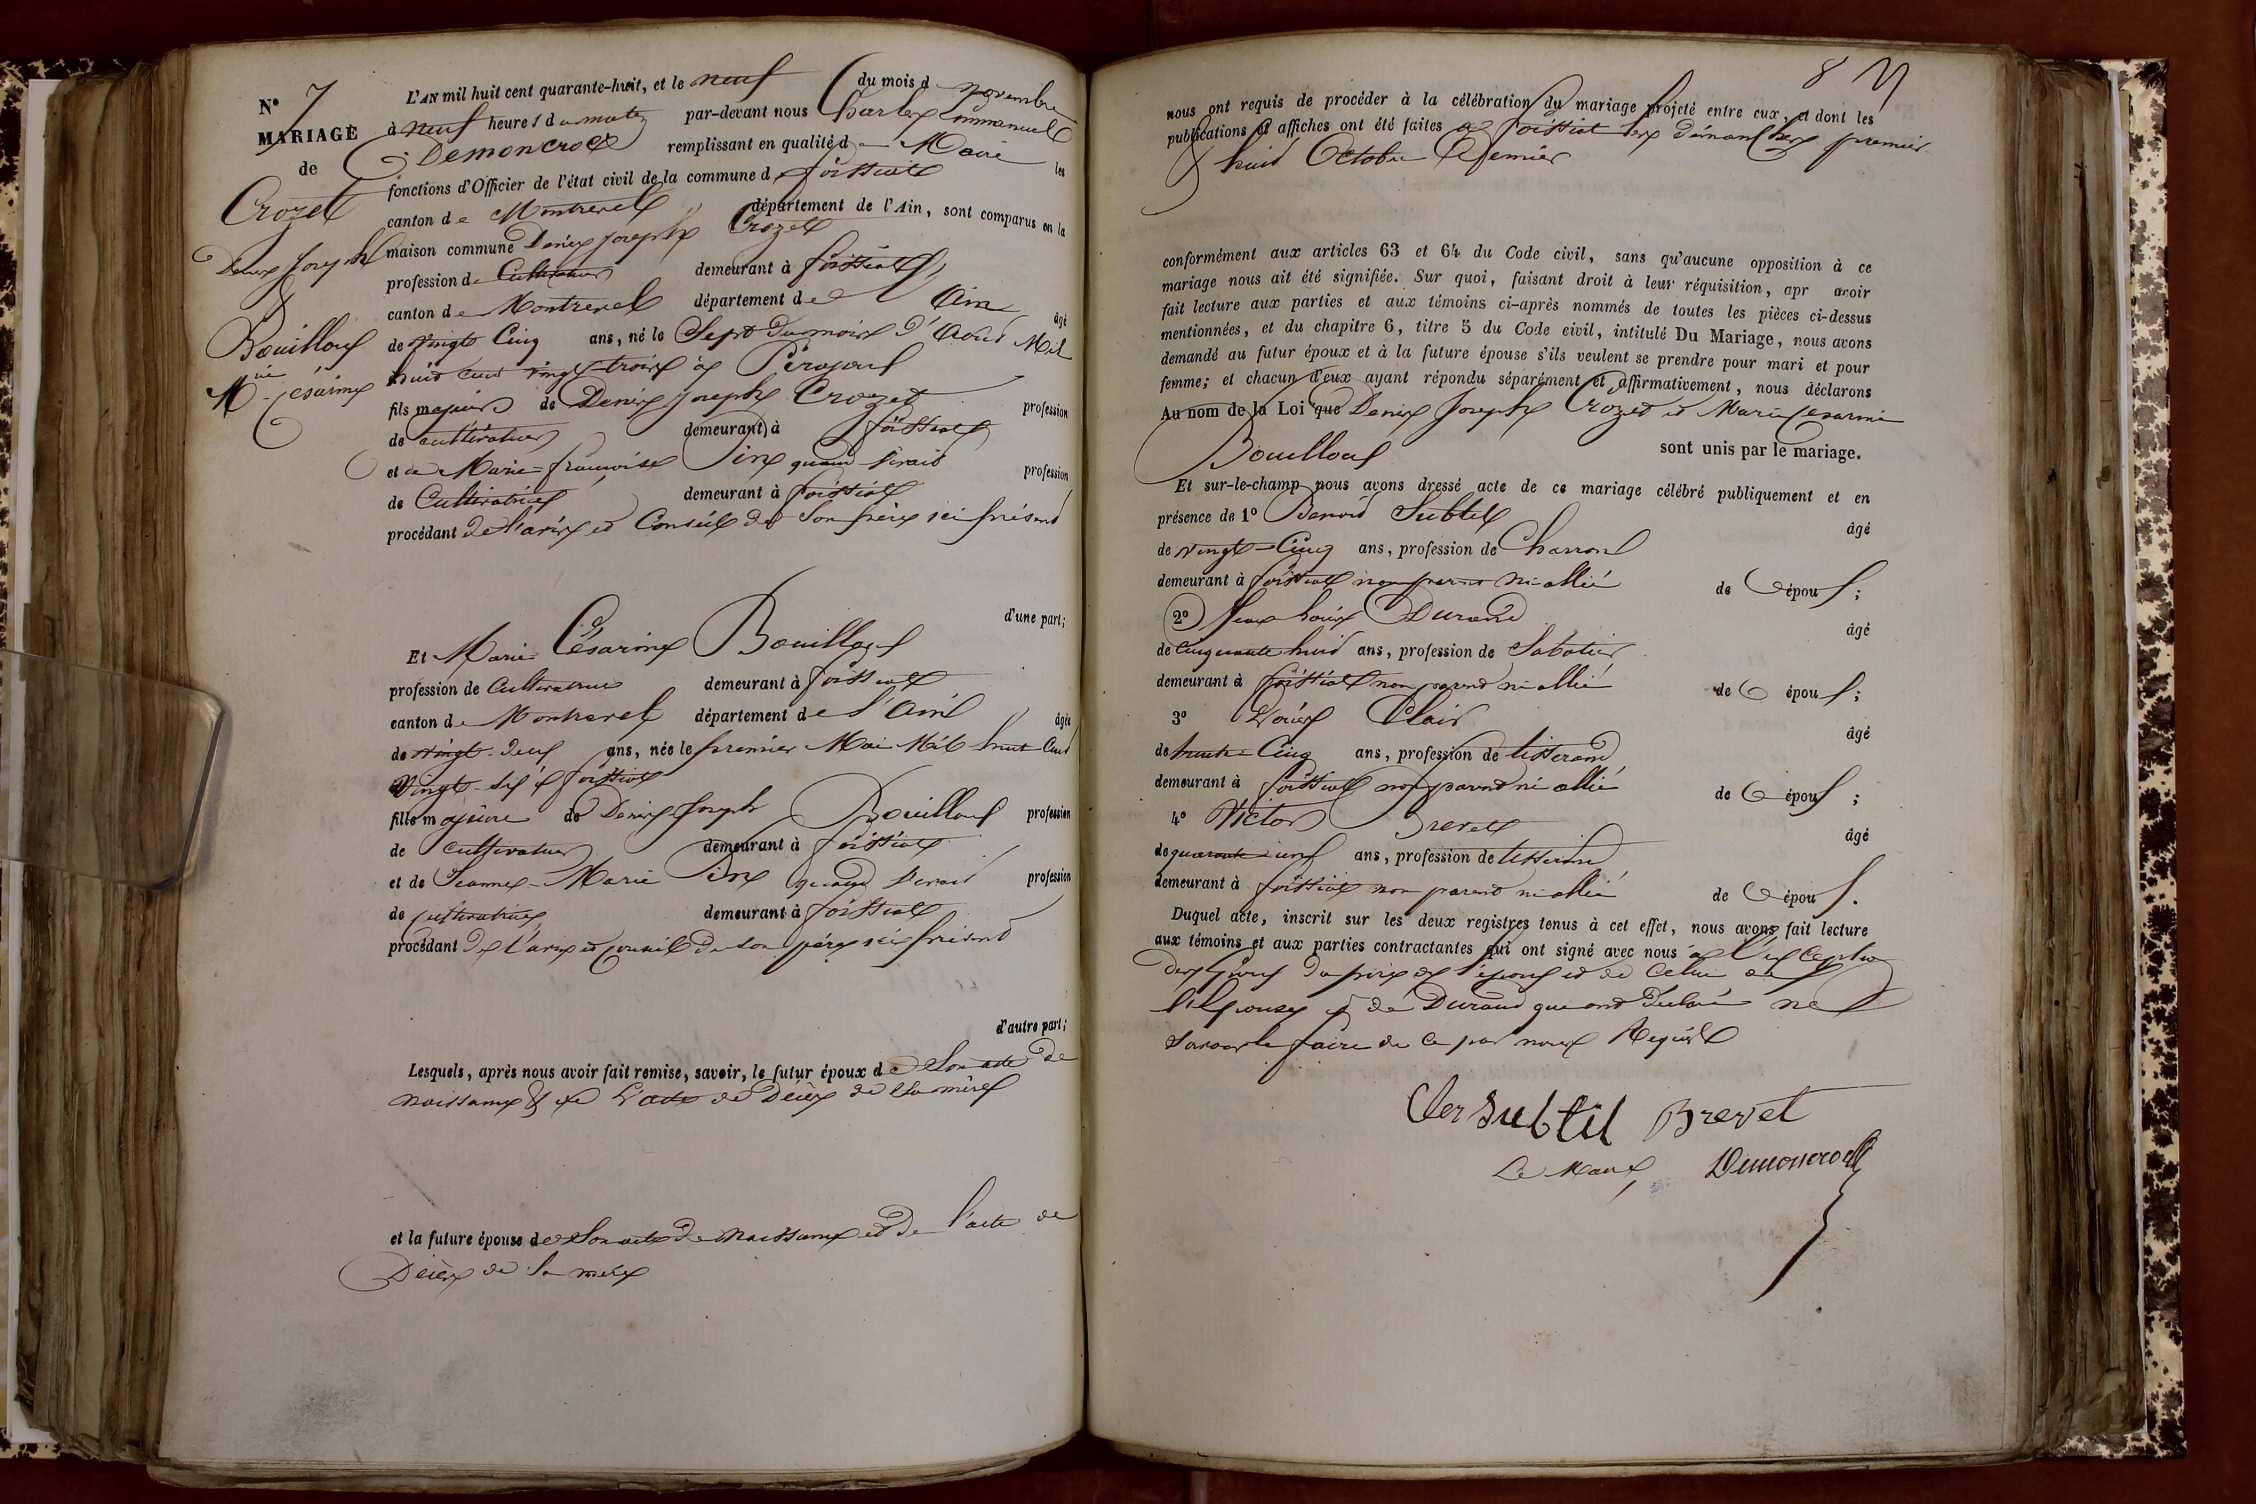 N° 7
MARIAGE
de
Crozet
Denis Joseph
&
Bouilloux
M ie Césarine
L'AN mil huit cent quarante-huit, et le neuf du mois de novembre
à neuf heures du matin par-devant nous Charles Emmanuel
Demoncroc remplissant en qualité de Maire les
fonctions d'Officier de l'état civil de la commune de foissiat
canton de Montrevel département de l'Ain, sont comparus en la
maison commune Denis Joseph Crozet
profession de Cultivateur demeurant à foissiat
canton de Montrevel département de l'Ain âgé
de vingt Cinq ans, né le Sept du mois d'Aout Mil
huit cent vingt trois à
fils majeur de Denis Joseph Crozet profession
de cultivateur demeurant à foissiat
et de Marie françoise Pin quand vivait profession
de Cultivatrice demeurant à foissiat
procédant de l'avis et Conseil de son frère ici présent
d'une part;
Et Marie Césarine Bouilloux
profession de Cultivatrice demeurant à foissiat
canton de Montrevel département de l'Ain âgée
de vingt deux ans, née le premier Mai Mil huit Cent
Vingt six à foissiat
fille majeure de Denis Joseph Bouilloux profession
de cultivateur demeurant à foissiat
et de Jeanne Marie Pin quand vivait profession
de cultivatrice demeurant à foissiat
procédant de l'avis et conseil de son père ici présent
d'autre part;
Lesquels, après nous avoir fait remise, savoir, le futur époux de son acte de
naissance & de l'acte de Décès de sa mère
et la future épouse de son acte de naissance et de l'acte de
Décès de sa mère
87
nous ont requis de procéder à la célébration du mariage projeté entre eux, et dont les
publications et affiches ont été faites à foissiat les dimanches premier
& huit Octobre dernier
conformément aux articles 63 et 64 du Code civil, sans qu'aucune opposition à ce
mariage nous ait été signifiée. Sur quoi, faisant droit à leur réquisition, apr avoir
fait lecture aux parties et aux témoins ci-après nommés de toutes les pièces ci-dessus
mentionnées, et du chapitre 6, titre 5 du Code civil, intitulé Du Mariage, nous avons
demandé au futur époux et à la future épouse s'ils veulent se prendre pour mari et pour
femme; et chacun d'eux ayant répondu séparément et affirmativement, nous déclarons
Au nom de la Loi que Denis Joseph Crozet et Marie Césarine
Bouilloux sont unis par le mariage.
Et sur-le-champ nous avons dressé acte de ce mariage célébré publiquement et en
présence de 1° Benoit Subtil âgé
de vingt Cinq ans, profession de Charron
demeurant à foissiat non parent ni allié de époux;
2° Jean Louis Durand âgé
de Cinquante huit ans, profession de Sabotier
demeurant à foissiat non parent ni allié de époux;
3° Louis Clair âgé
de trente Cinq ans, profession de tisserand
demeurant à foissiat non parent ni allié de époux;
4° Victor Brevet âgé
de quarante un ans, profession de tisserand
demeurant à foissiat non parent ni allié de époux.
Duquel acte, inscrit sur les deux registres tenus à cet effet, nous avons fait lecture
aux témoins et aux parties contractantes qui ont signé avec nous à l'exception
des époux du père de l'époux et de celui de
l'Epouse & de Durand qui ont déclaré ne
savoir le faire de ce par nous Requis
Cler Subtil Brevet
Le Maire, Demoncroc